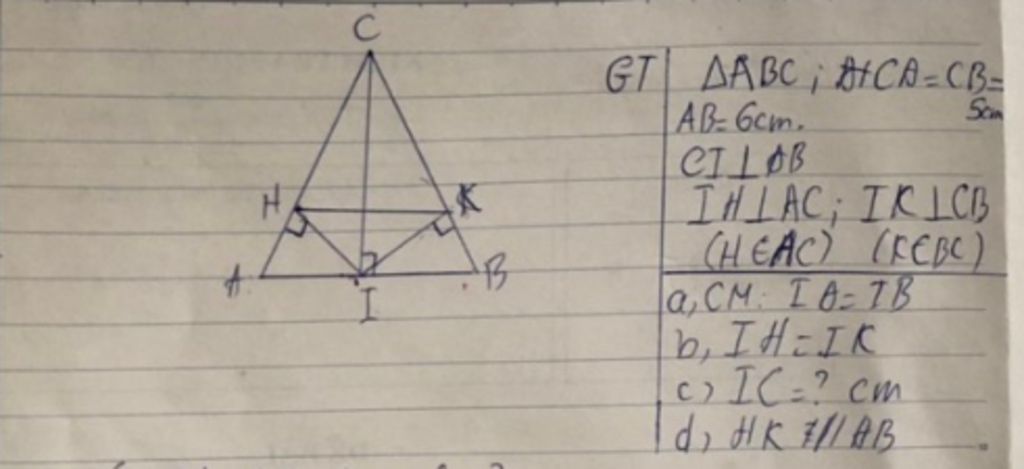 C
H
K
A
B
I
GT
ΔABC; CA=CB=
5cm
AB=6cm.
CI⊥AB
IH⊥AC; IK⊥CB
(H∈AC) (K∈BC)
a, CM: IA=IB
b, IH=IK
c) IC=? cm
d, HK // AB